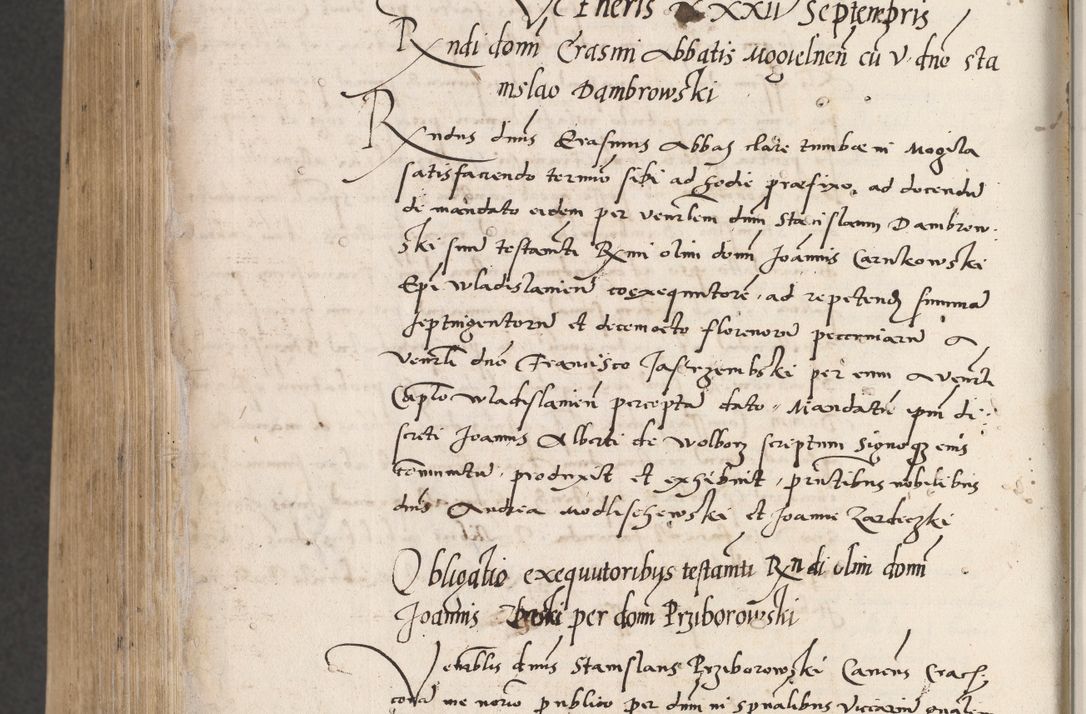 Veneris XXXII Septembris
Rxndi domi Erasmi Abbatis Mogielnen cu v. dno sta
nislao Dambrowski
Rxndus dnus Erasmus Abbas clare tumbae in Mogila
satisfaciendo termino sibi ad hodie praefixo, ad docendu
de mandato eidem per venrlem dnm Stanislaum Dambrow-
ski sum testamti Rxmi olim domi Joannis Carnkowski
Epi Wladislamien coexequutore, ad repetend summa
septingentoru et decemocto florenoru pecuniaru a
venrli dno Francisco Jastrzembski per eum a venrli
Caplo Wladislamien percepta dato, Mandatu ipm di-
screti Joannis Alberti de Wolborz scriptum signoqz eius
comunitu, produxit et exhibuit, pntibus nobilibus
dnis Andrea Modlischewski et Joanne Zardeczki
Obligatio exequutoribus testamti Rxndi olim domi
Joannis per dom Prziborowski
Venablis dnus Stanislaus Prziborowski Canens Crach-
cora me norio publico per dnm in spualibus viccariu